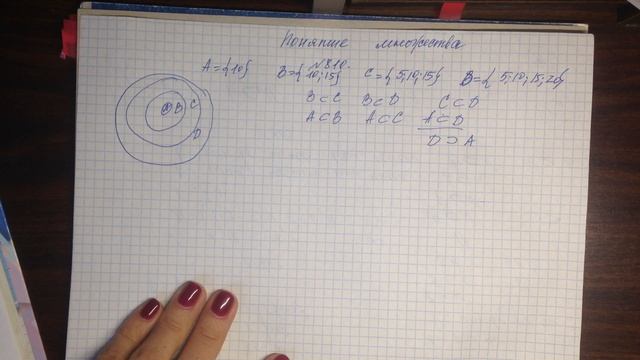 Понятие множества
№810.
A = {10} B = {10; 15} C = {5; 10; 15} B = {5; 10; 15; 20}
B ⊂ C B ⊂ D C ⊂ D
A ⊂ B A ⊂ C A ⊂ D
D ⊃ A
A B C
D